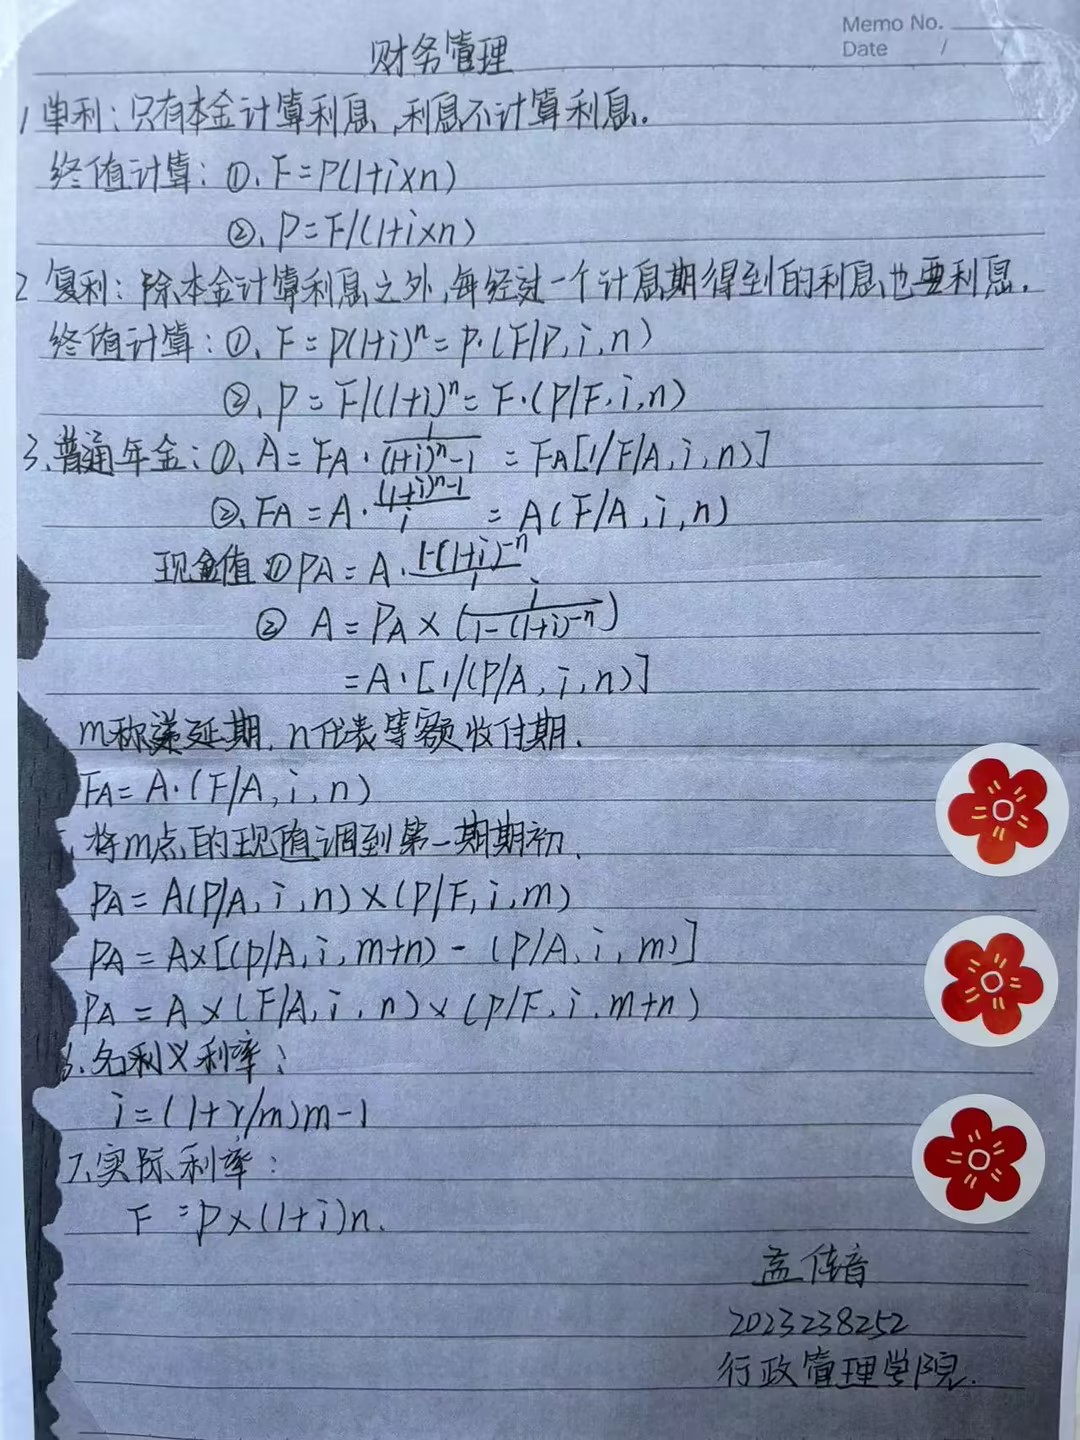 Memo No.
Date / /
财务管理
1 单利：只有本金计算利息，利息不计算利息。
终值计算：①、F=P(1+i×n)
②、P=F/(1+i×n)
2 复利：除本金计算利息之外，每经过一个计息期得到的利息也要利息.
终值计算：①、F=P(1+i)ⁿ=P·(F/P,i,n)
②、P=F/(1+i)ⁿ=F·(P/F,i,n)
3、普通年金：①、A=FA·1/((1+i)ⁿ-1)=FA[1/F/A,i,n)]
②、FA=A·((1+i)ⁿ-1)/i=A(F/A,i,n)
现金值①PA=A·(1-(1+i)⁻ⁿ)/i
② A=PA×(i/(1-(1+i)⁻ⁿ))
=A·[1/(P/A,i,n)]
m称递延期，n代表等额收付期.
FA=A·(F/A,i,n)
将m点的现值调到第一期期初.
PA=A(P/A,i,n)×(P/F,i,m)
PA=A×[(P/A,i,m+n)-(P/A,i,m)]
PA=A×(F/A,i,n)×(P/F,i,m+n)
6、名利义利率：
i=(1+r/m)m-1
7、实际利率：
F=P×(1+i)n.
孟传音
2023238252
行政管理学院.